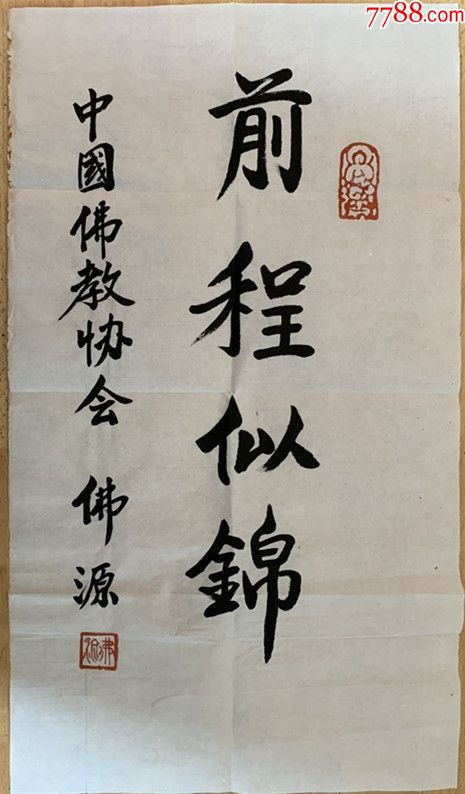 7788.com
前程似錦
中國佛教协会 佛源